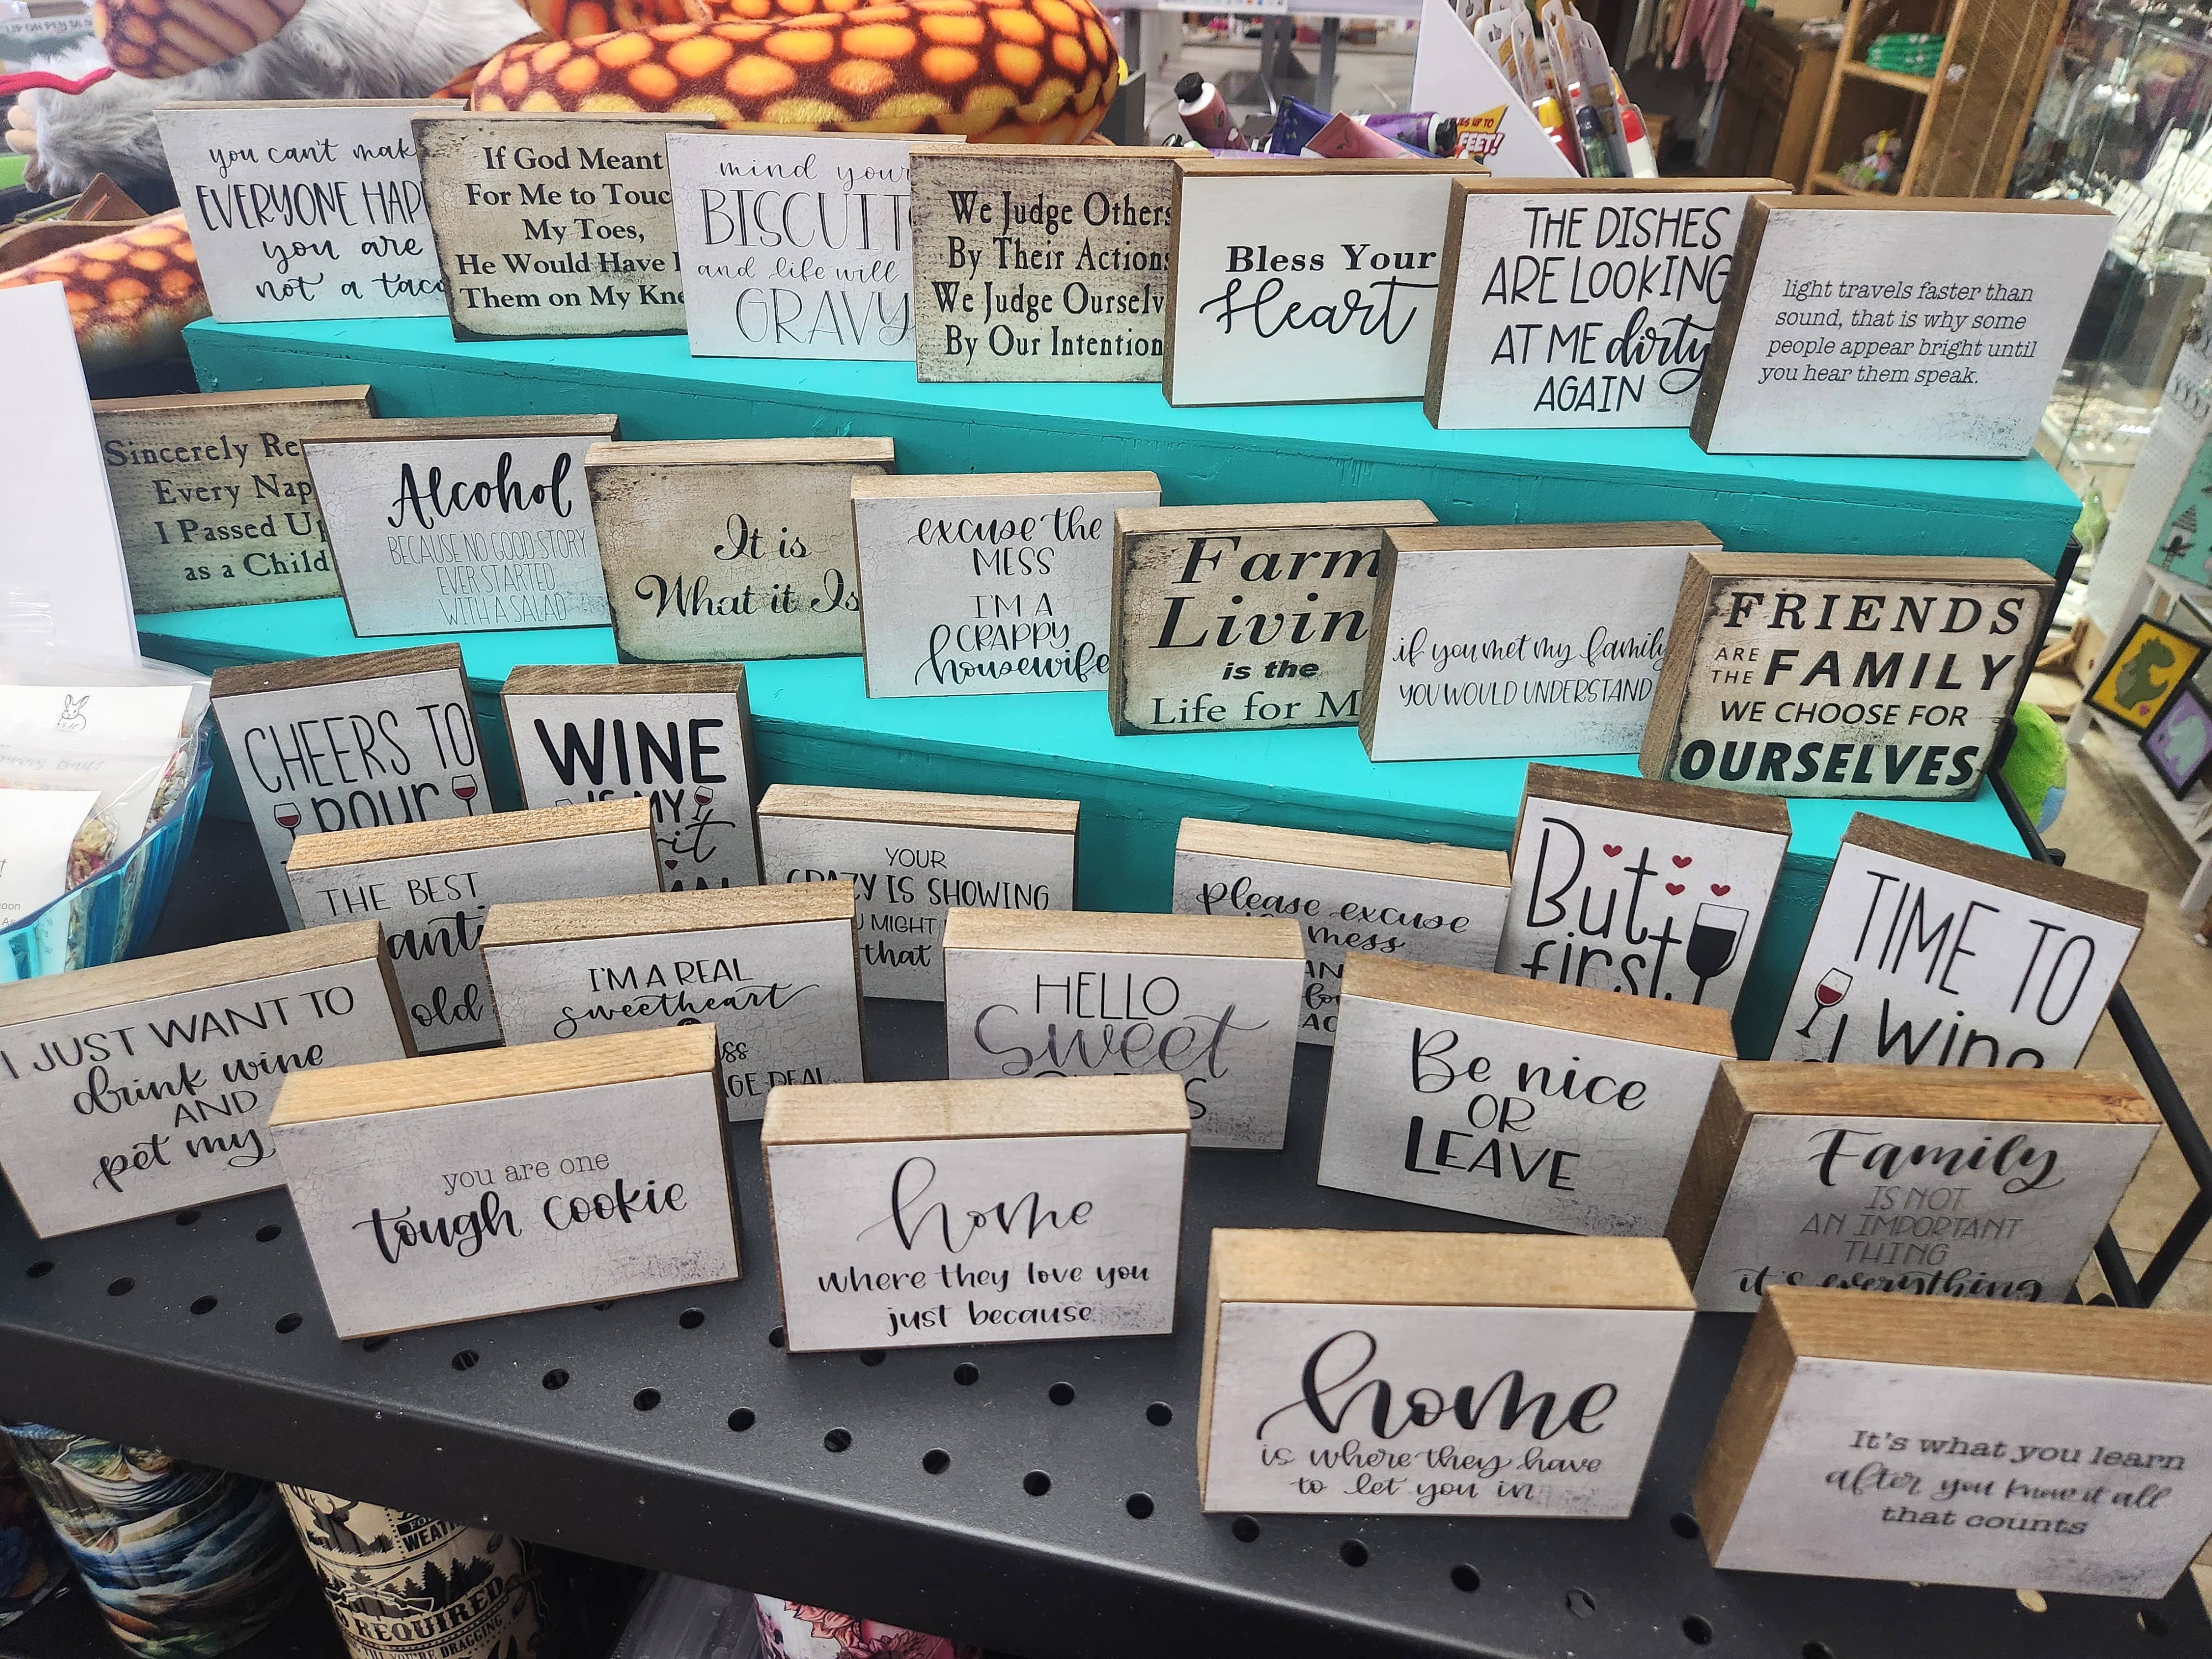 you can't mak
EVERYONE HAP
you are
not a taco
If God Meant
For Me to Touc
My Toes,
He Would Have
Them on My Kne
mind your
BISCUIT
and life will
GRAVY
We Judge Others
By Their Action
We Judge Ourselv
By Our Intention
Bless Your
Heart
THE DISHES
ARE LOOKING
AT ME dirty
AGAIN
light travels faster than
sound, that is why some
people appear bright until
you hear them speak.
Sincerely Re
Every Nap
I Passed Up
as a Child
Alcohol
BECAUSE NO GOOD STORY
EVER STARTED
WITH A SALAD
It is
What it Is
excuse the
MESS
I'M A
CRAPPY
housewife
Farm
Livin
is the
Life for M
if you met my family
YOU WOULD UNDERSTAND
FRIENDS
ARE THE FAMILY
WE CHOOSE FOR
OURSELVES
CHEERS TO
pour
WINE
IS MY
THE BEST
anti
old
YOUR
CRAZY IS SHOWING
U MIGHT
that
please excuse
mess
But
first,
TIME TO
wine
I JUST WANT TO
drink wine
AND
pet my
I'M A REAL
sweetheart
HELLO
Sweet
Be nice
OR
LEAVE
you are one
tough cookie
home
where they love you
just because
Family
IS NOT
AN IMPORTANT
THING
it's everything
home
is where they have
to let you in
It's what you learn
after you know it all
that counts
FEET!
WEAT
REQUIRED
TILL YOU'RE DRAGGING